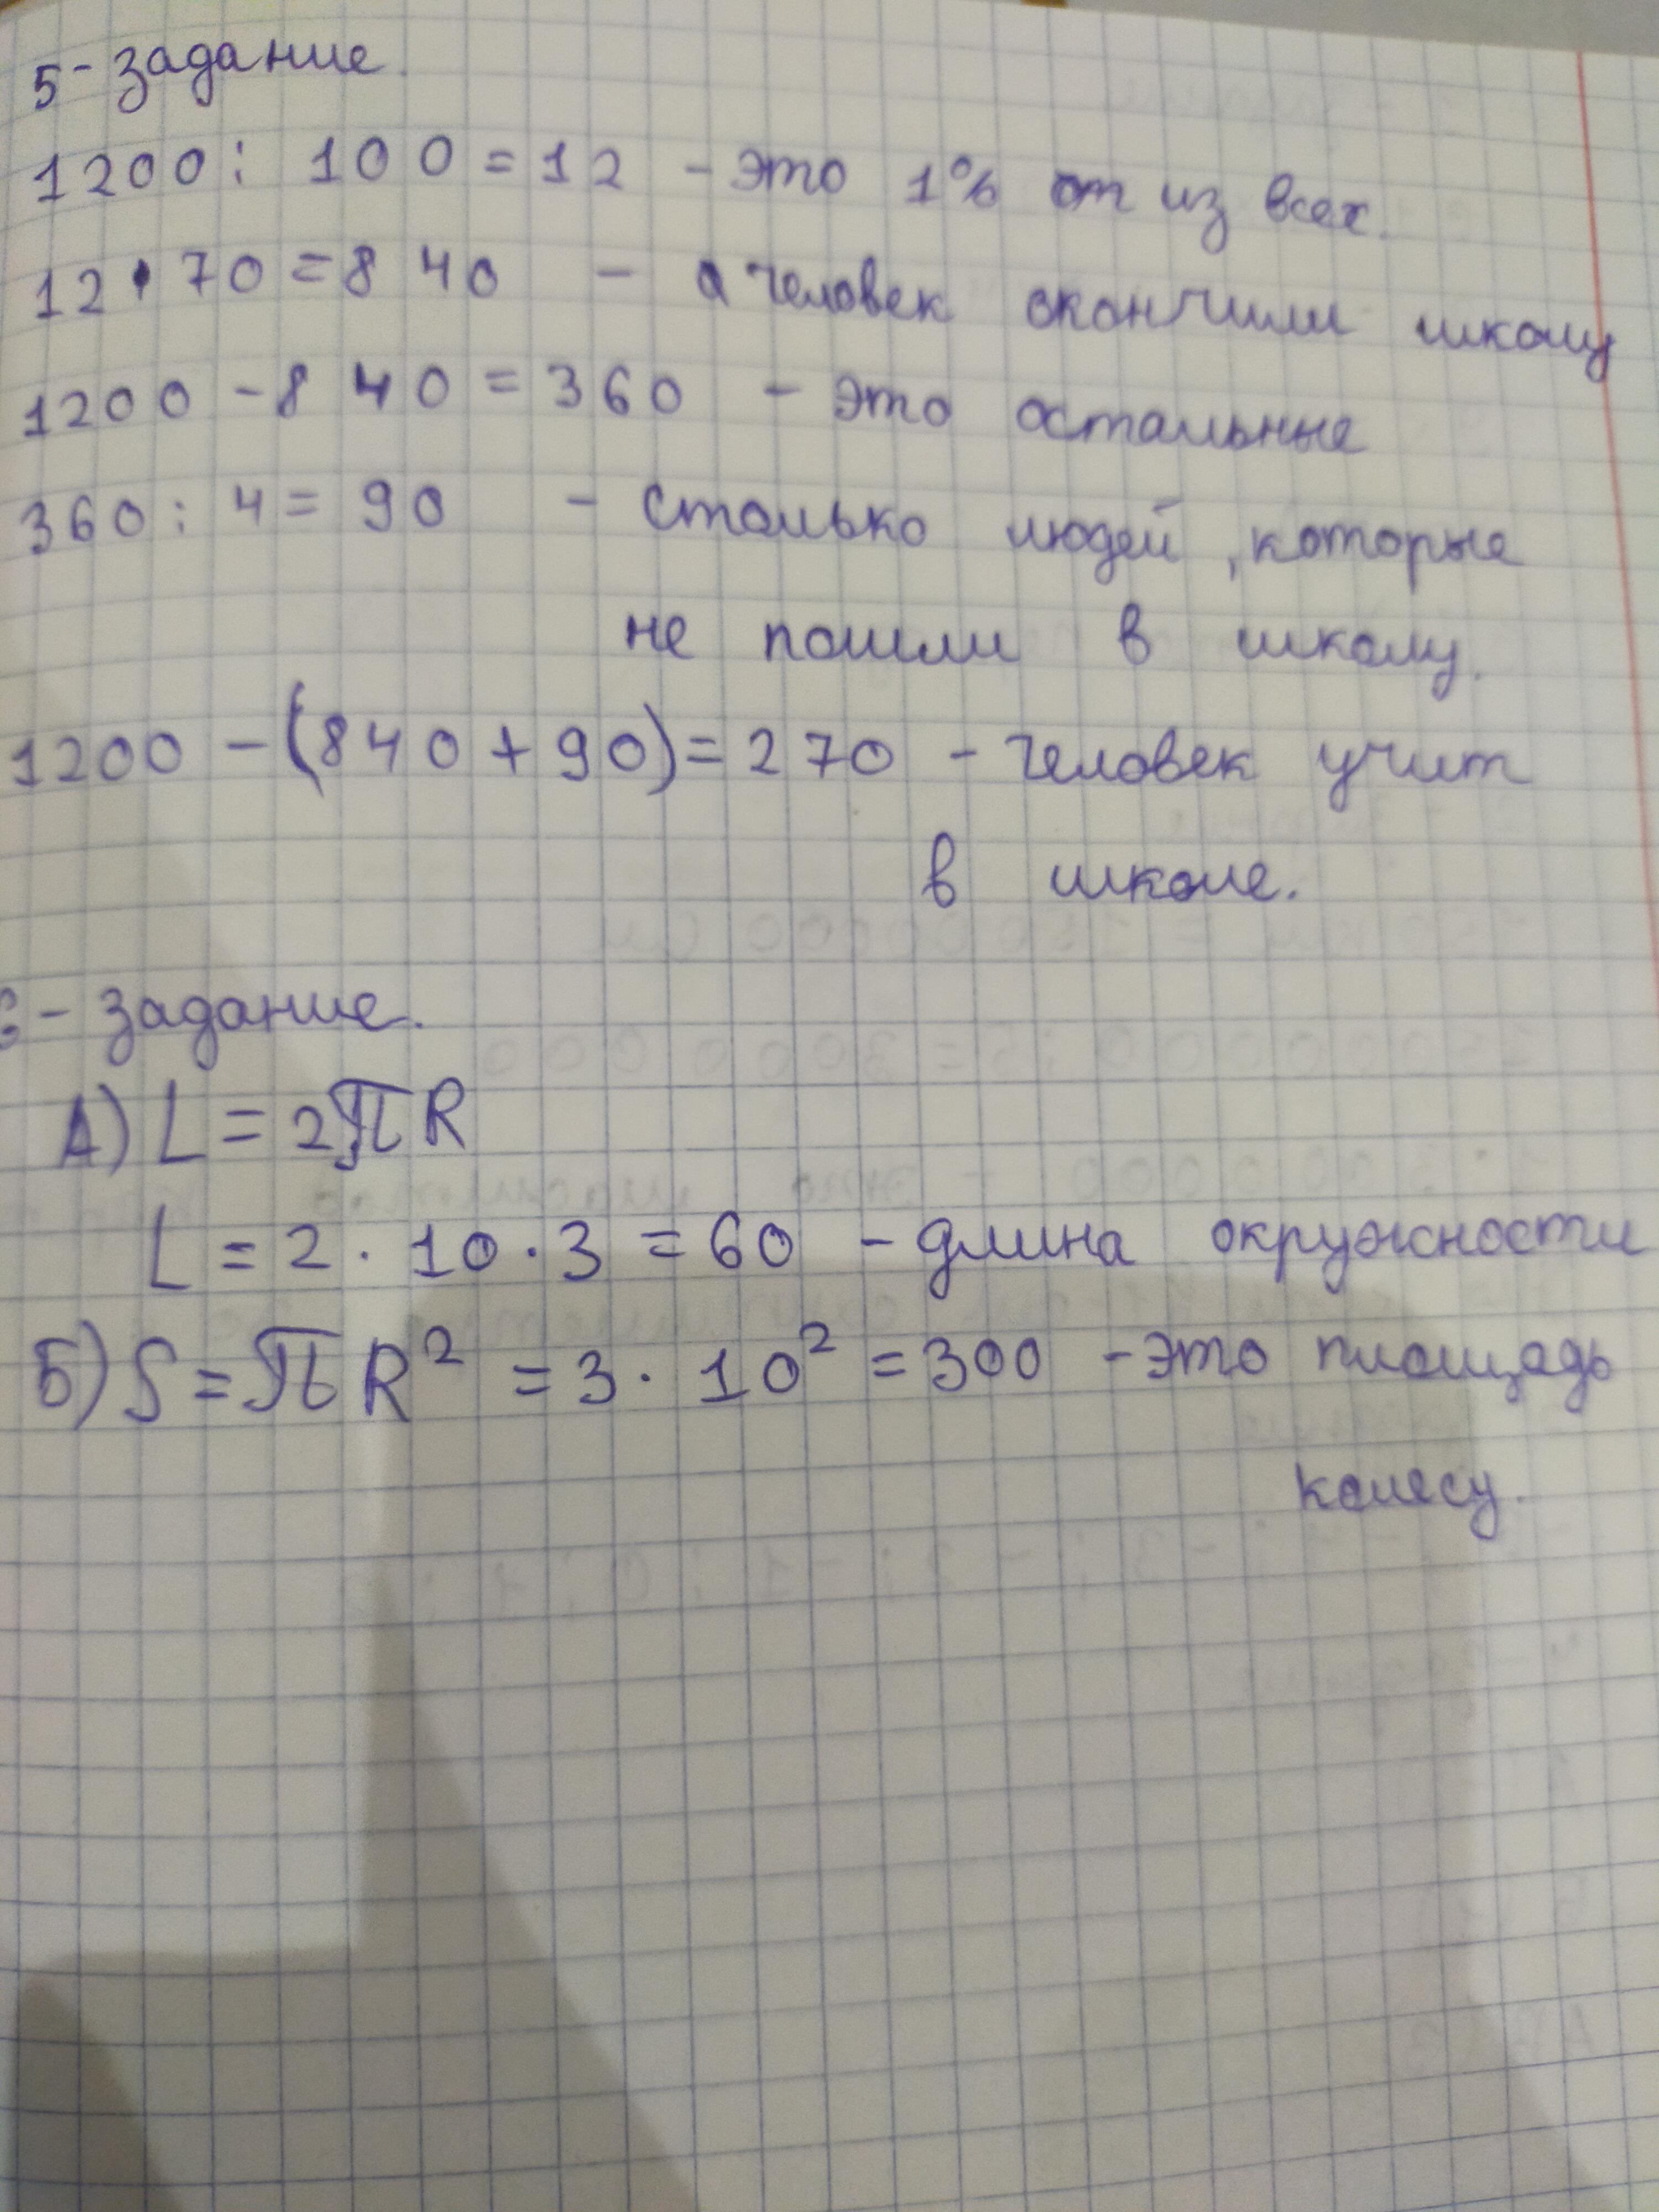 5 - задание.
1200 : 100 = 12 - это 1% от из всех.
12 · 70 = 840 - человек окончили школу
1200 - 840 = 360 - это остальные
360 : 4 = 90 - столько людей, которые
не пошли в школу.
1200 - (840 + 90) = 270 - человек учит
в школе.
6 - задание.
А) L = 2πR
L = 2 · 10 · 3 = 60 - длина окружности
Б) S = πR² = 3 · 10² = 300 - это площадь
колесу.